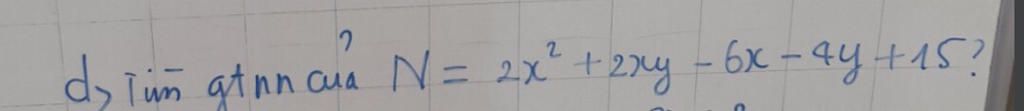 d, Tìm gtnn của N = 2x² + 2xy - 6x - 4y + 15?